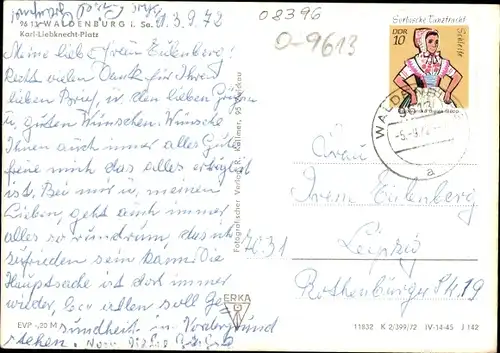 9613 WALDENBURG i. Sa.
Karl-Liebknecht-Platz
d. 3.9.72
08396
0-9613
Sorbische Tanztracht
DDR
10
Schleife
WALDENBURG
9613
a
Meine liebe Frau Eulenberg!
Recht vielen Dank für Ihren
lieben Brief, den lieben Grüßen
u. guten Wünschen. Wünsche
Ihnen auch immer alles Gute
freue mich das alles erledigt
ist. Bei mir u. meinen
Lieben, geht auch immer
alles so rundrum, das ich
zufrieden sein kann. Die
Hauptsache ist doch immer
wieder, soll Ge
sundheit im Vordergrund
stehen.
Frau
Irene Eulenberg
7031
Leipzig
Rothenburger Str. 19
Fotografischer Verlag R. Kallmer, 95 Zwickau
ERKA
EVP -,20 M
11832 K 2/399/72 IV-14-45 J 142